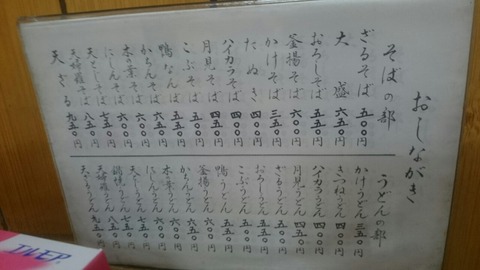 おしながき
そばの部
ざるそば 五〇〇円
大盛 六五〇円
おろしそば 五五〇円
釜揚そば 六〇〇円
かけそば 三五〇円
たぬき 四〇〇円
ハイカラそば 四〇〇円
月見そば 四五〇円
こぶそば 五五〇円
鴨なんば 五五〇円
かちんそば 六五〇円
木の葉そば 六〇〇円
にしんそば 六〇〇円
七五〇円
八五〇円
天ざる 九五〇円
うどんの部
かけうどん 三五〇円
きつねうどん 四五〇円
ハイカラうどん 四〇〇円
月見うどん 四五〇円
ざるうどん
おろしうどん 五五〇円
こぶうどん 五五〇円
釜揚うどん
鴨うどん
かちんうどん 六五〇円
木の葉うどん 六〇〇円
にしんうどん
七五〇円
鍋焼うどん 八五〇円
九五〇円